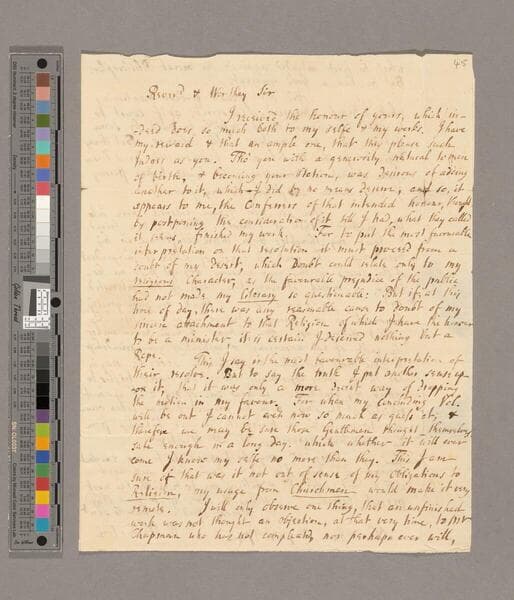 45
Rever'd & Worthey Sir
I received the honour of yours, which in-
-deed does so much both to my selfe & my works. I have
my reward & that an ample one, that they please such
Judges as you. Tho' you with a generosity natural to men
of birth, & becoming your station, was desirous of adding
another to it, which I did by no means deserve, and so, it
appears to me, the Conferrers of that intended honour, thought
by postponing the consideration of it till I had, what they called
it, finished my work. For to put the most favourable
interpretation on that resolution it must proceed from a
doubt of my desert, which Doubt could relate only to my
religious Character, as the favourable prejudice of the publick
had not made my literary so questionable: But if at this
time of day, there was any reasonable cause to doubt of my
sincere attachment to that Religion of which I have the honour
to be a minister, it is certain I deserved nothing but a
Rope. This I say is the most favourable interpretation of
their resolve. But to say the truth I put another sense up
-on it, that it was only a more decent way of dropping
the motion in my favour. For when my Concluding Vol.
will be out I cannot even now so much as guess at; &
therefore we may be sure those Gentlemen thought themselves
safe enough in a long day: which whether it will ever
come I know my selfe no more than they. This I am
sure of that was it not out of sense of my obligations to
Religion, my usage from Churchmen would make it very
remote. I will only observe one thing, that an unfinished
work was not thought an objection, at that very time, to Dr
Chapman who has not compleated, nor perhaps ever will,